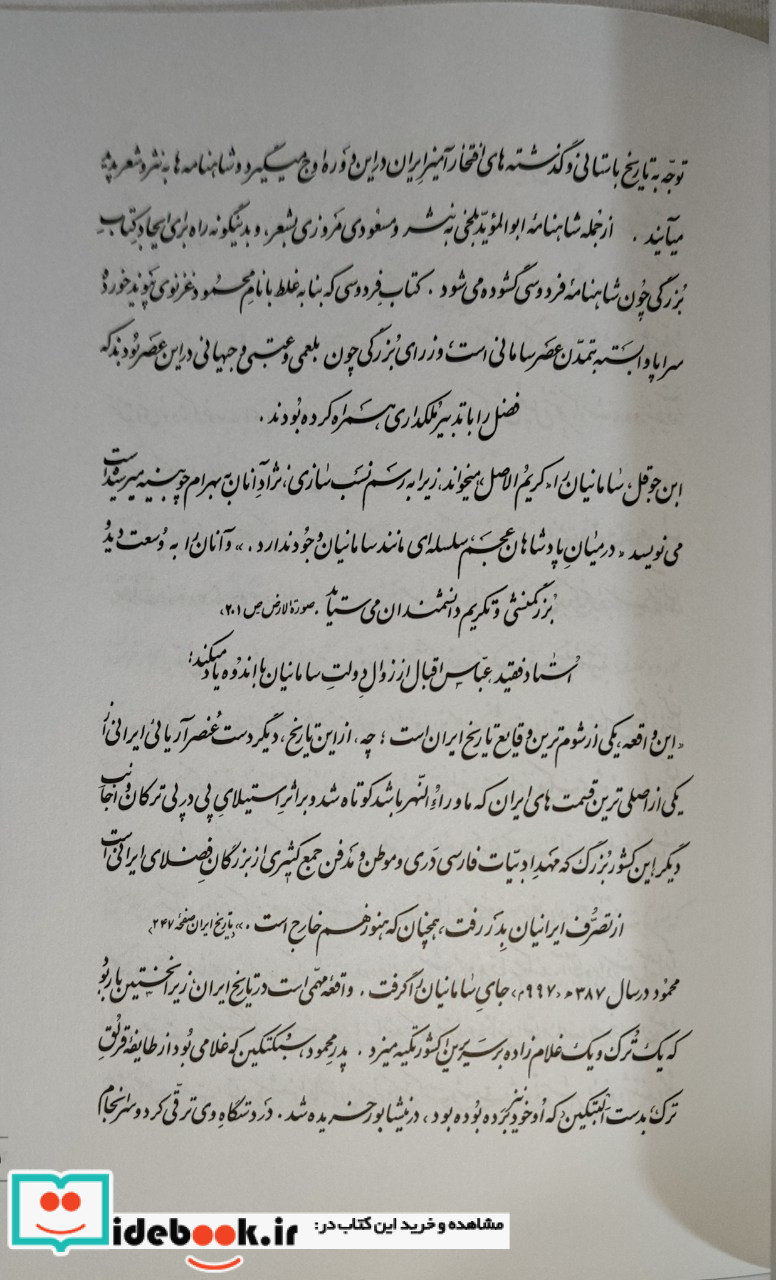 توجّه به تاریخ باستانی و گذشته های افتخارآمیز ایران در این دوره اوج میگیرد و شاهنامه ها به نثر و شعر پدید
میآیند . از جمله شاهنامهٔ ابوالمؤید بلخی به نثر و مسعودی مَروزی بشعر، و بدینگونه راه برای ایجاد کتابِ
بُزرگی چُون شاهنامهٔ فردوسی گشوده می شود . کتاب فِردوسی که بنا به غلط با نامِ محمود غزنوی پَیوند خورده
سراپا وابسته به تمدّن عصَر سامانی است؛ وزرای بُزرگی چون بلعمی و عتبی و جیهانی در این عصَر بُودند که
فضل را با تدبیرِ مُلکداری همراه کرده بُودند .
ابن حوقل، سامانیان را «کریمُ الاصل» میخواند، زیرا به رسمِ نسَب سازی، نژادِ آنان به بهرام چوبینه میرسیده است
می نویسد «در میان پادشاهان عجَم، سلسله ای مانند سامانیان وجُود ندارد .» و آنان را به وُسعت دید و
بُزرگمنشی و تکریم دانشمندان می ستاید . «صورة الارض ص ۲۰۱»
اُستاد فقید عبّاس اقبال از زوالِ دولتِ سامانیان با اندُوه یاد میکند:
«این واقعه، یکی از شوم ترین وقایع تاریخ ایران است ؛ چه ، از این تاریخ، دیگر دست عُنصر آریائی ایرانی از
یکی از اصلی ترین قسمت های ایران که ماوراءُالنّهر باشد کوتاه شد و بر اثرِ استیلایِ پی در پی ترکان و اجانب
دیگر، این کشور بُزرگ که مَهدِ ادبیّات فارسی دَری و موطن و مَدفن جمع کثیری از بزرگان و فُضلای ایرانی است
از تصرُّف ایرانیان بِدَر رفت، همچنان که هنوز هم خارج است .» «تاریخ ایران صفحهٔ ۲۴۷»
محمُود در سال ۳۸۷ ه «۹۹۷ م» جایِ سامانیان را گرفت . واقعهٔ مهمّی است در تاریخ ایران زیرا نخستین بار بُود
که یک تُرک و یک غلام زاده بر سریرِ این کشور تکیه میزد . پدرِ محمود، سبُکتکین که غلامی بُود از طایفهٔ قَرلُقِ
ترک، بدست آلپتکین که اُو خود نیز بَرده بُوده بود ، در نیشابور خریده شد . در دستگاهِ وی ترقّی کرد و سرانجام
مشاهده و خرید این کتاب در:
idebook.ir